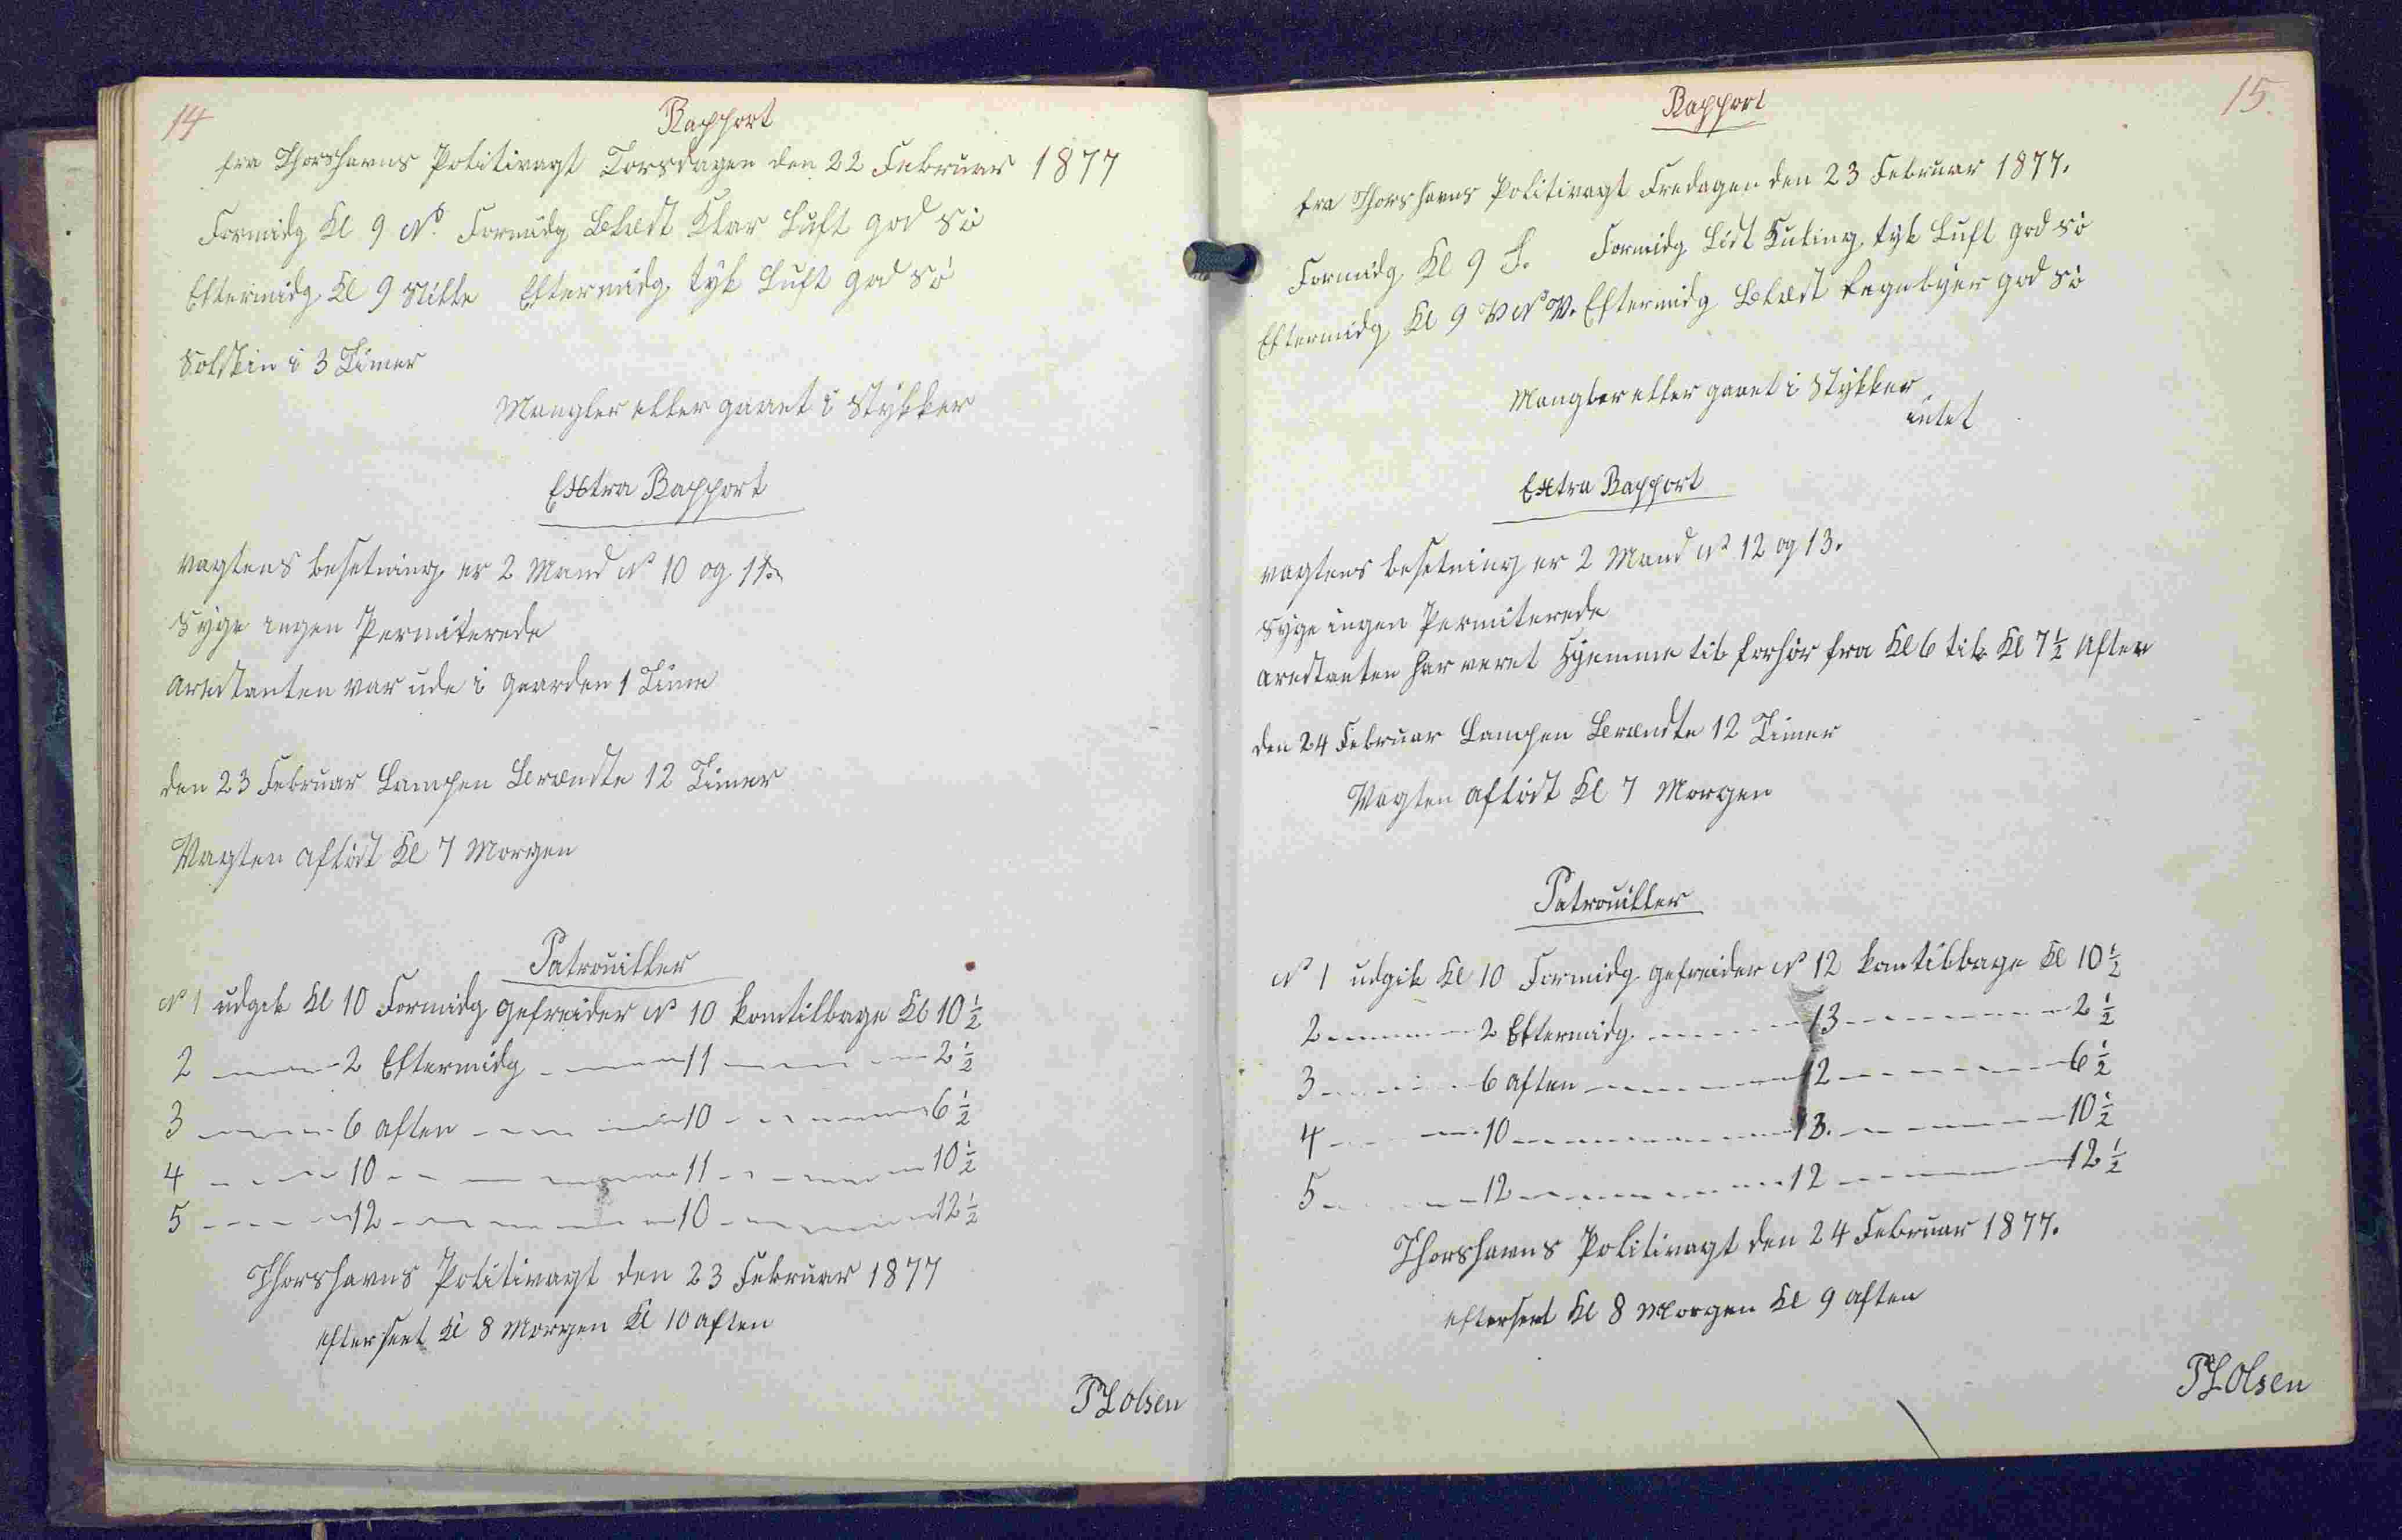 14
Rapport
fra Thorshavns Politivagt Torsdagen den 22 Februar 1877
Formidg Kl 9 No. Formidg Blæst Klar Luft god Sö
Eftermidg Kl 9 Stille Eftermidg tyk Luft god Sö
Solskin i 3 Timer
Mangler eller gaaet i Stykker
Extra Rapport
vagtens besetning er 2 Mand No 10 og 11
Syge ingen Permiterede
Arestanten var ude i Gaarden 1 Time
den 23 Februar Lampen Brændte 12 Timer
Vagten aflöst Kl 7 Morgen
Patrouiller
No 1 udgik Kl 10 Formidg gefreider No 10 kom tilbage Kl 10 ½
2 — 2 Eftermidg — 11 — 2 ½
3 — 6 aften — 10 — 6 ½
4 — 10 — 11 — 10 ½
5 — 12 — 10 — 12 ½
Thorshavns Politivagt den 23 Februar 1877
efterseet Kl 8 Morgen Kl 10 aften
PL Olsen
15.
Rapport
fra Thorshavns Politivagt Fredagen den 23 Februar 1877.
Formidg Kl 9 S. Formidg Lidt Kuling tyk Luft god Sö
Eftermidg Kl 9 V No V. Eftermidg Blæst Regnbyer god Sö
Mangler eller gaaet i Stykker
intet
Extra Rapport
vagtens besetning er 2 Mand No 12 og 13.
Syge ingen Permiterede
arestanten har veret Hjemme til forhör fra Kl 6 til Kl 7 ½ Aften
den 24 Februar Lampen Brændte 12 Timer
Vagten aflöst Kl 7 Morgen
Patrouiller
No 1 udgik Kl 10 Formidg gefreider No 12 kom tilbage Kl 10 ½
2 — 2 Eftermidg. — 13 — 2 ½
3 — 6 aften — 12 — 6 ½
4 — 10 — 13. — 10 ½
5 — 12 — 12 — 12 ½
Thorshavns Politivagt den 24 Februar 1877.
efterseet Kl 8 Morgen Kl 9 aften
PL Olsen